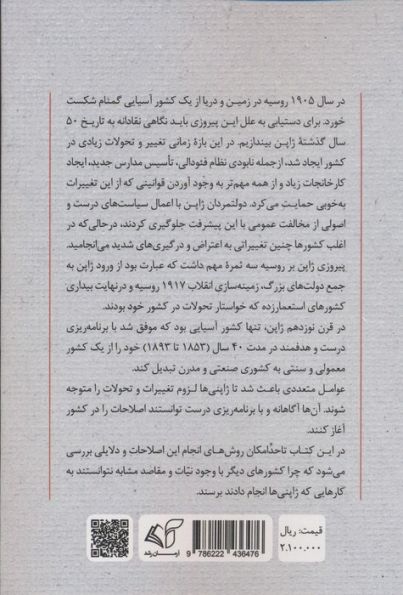 در سال ۱۹۰۵ روسیه در زمین و دریا از یک کشور آسیایی گمنام شکست
خورد. برای دستیابی به علل این پیروزی باید نگاهی نقادانه به تاریخ ۵۰
سال گذشتهٔ ژاپن بیندازیم. در این بازهٔ زمانی تغییر و تحولات زیادی در
کشور ایجاد شد، ازجمله نابودی نظام فئودالی، تأسیس مدارس جدید، ایجاد
کارخانجات زیاد و از همه مهم‌تر به وجود آوردن قوانینی که از این تغییرات
به‌خوبی حمایت می‌کرد. دولتمردان ژاپن با اعمال سیاست‌های درست و
اصولی از مخالفت عمومی با این پیشرفت جلوگیری کردند، درحالی‌که در
اغلب کشورها چنین تغییراتی به اعتراض و درگیری‌های شدید می‌انجامید.
پیروزی ژاپن بر روسیه سه ثمرهٔ مهم داشت که عبارت بود از ورود ژاپن به
جمع دولت‌های بزرگ، زمینه‌سازی انقلاب ۱۹۱۷ روسیه و درنهایت بیداری
کشورهای استعمارزده که خواستار تحولات در کشور خود بودند.
در قرن نوزدهم ژاپن، تنها کشور آسیایی بود که موفق شد با برنامه‌ریزی
درست و هدفمند در مدت ۴۰ سال (۱۸۵۳ تا ۱۸۹۳) خود را از یک کشور
معمولی و سنتی به کشوری صنعتی و مدرن تبدیل کند.
عوامل متعددی باعث شد تا ژاپنی‌ها لزوم تغییرات و تحولات را متوجه
شوند. آن‌ها آگاهانه و با برنامه‌ریزی درست توانستند اصلاحات را در کشور
آغاز کنند.
در این کتاب تاحدّامکان روش‌های انجام این اصلاحات و دلایلی بررسی
می‌شود که چرا کشورهای دیگر با وجود نیّات و مقاصد مشابه نتوانستند به
کارهایی که ژاپنی‌ها انجام دادند برسند.
قیمت: ریال
۲.۱۰۰.۰۰۰
آرمان رشد
9 786222 436476